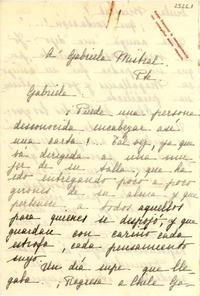 A Gabriela Mistral
Pte.
Gabriela:
¿Puede una persona
desconocida encabezar así
una carta? Tal vez, ya que
va dirigida a una mu-
jer de su talla, que ha
ido entregando poco a poco
girones de su alma y que
pertenece a todos aquellos
para quienes se despojó, y que
guardan con cariño cada
estrofa, cada pensamiento
suyo.
Un día supe que lle-
gaba. "Regresa a Chile Ga-